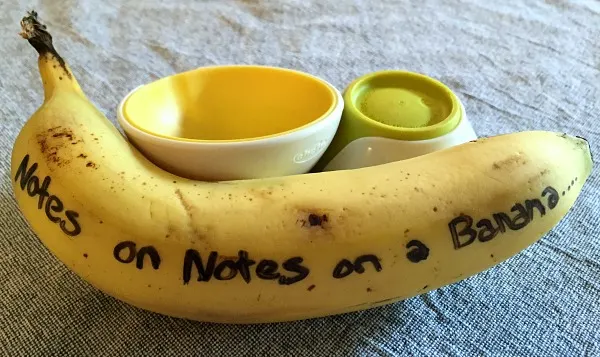 Notes on Notes on a Banana....